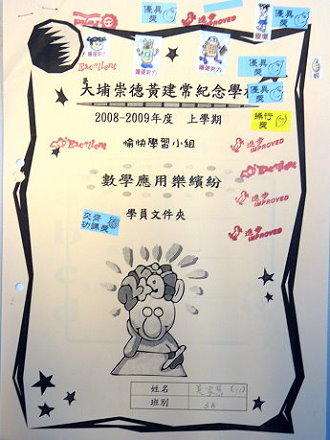 優異獎
進步 IMPROVED
優異獎
Excellent
優異獎
大埔崇德黃建常紀念學校
優異獎
2008-2009年度 上學期
操行獎
愉快學習小組
Excellent
進步 IMPROVED
數學應用樂繽紛
進步 IMPROVED
Excellent
學員文件夾
交齊功課獎
進步 IMPROVED
進步 IMPROVED
姓名
班別 3A